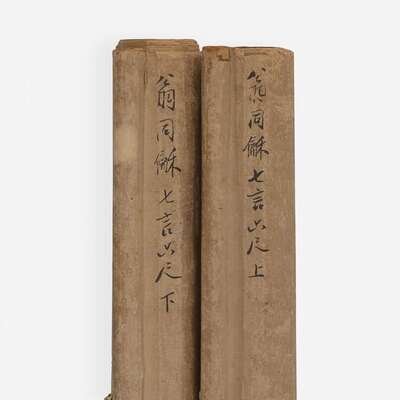 翁同龢七言六尺上
翁同龢七言六尺下